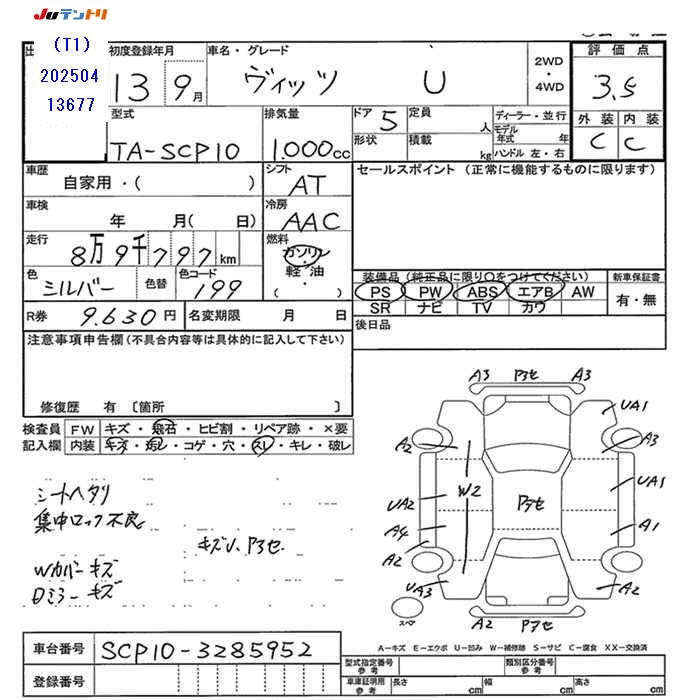 JUテントリ
(T1)
202504
13677
初度登録年月
13 9月
車名・グレード
ヴィッツ U
2WD
・
4WD
評価点
3.5
外装 内装
C C
型式
TA-SCP10
排気量
1.000cc
ドア 5
形状
定員 人
積載 kg
ディーラー・並行
モデル年式 年
ハンドル 左・右
車歴
自家用・( )
シフト
AT
セールスポイント (正常に機能するものに限ります)
車検
年 月( 日)
冷房
AAC
走行
8万9千797km
燃料
ガソリン
軽・油
・
( )
色
シルバー
色替
色コード
199
装備品 (純正品に限り○をつけてください)
PS PW ABS エアB AW
SR ナビ TV カワ
新車保証書
有・無
R券 9.630円
名変期限 月 日
後日品
注意事項申告欄(不具合内容等は具体的に記入して下さい)
修復歴 有 〔箇所 〕
検査員記入欄
FW キズ・飛石・ヒビ割・リペア跡・×要
内装 キズ・汚レ・コゲ・穴・スレ・キレ・破レ
シートヘタリ
集中ロック不良
キズU、アセ
Wカバーキズ
Dミラーキズ
A3 アセ A3
UA1
A2 A3
W2 アセ
UA2 UA1
A4 A1
A2
UA3 A2
スペア
A2 アセ
A−キズ E−エクボ U−凹み W−補修跡 S−サビ C−腐食 XX−交換済
車台番号 SCP10-3285952
登録番号
型式指定番号 参考
類別区分番号 参考
車庫証明用 参考
長さ cm 幅 cm 高さ cm